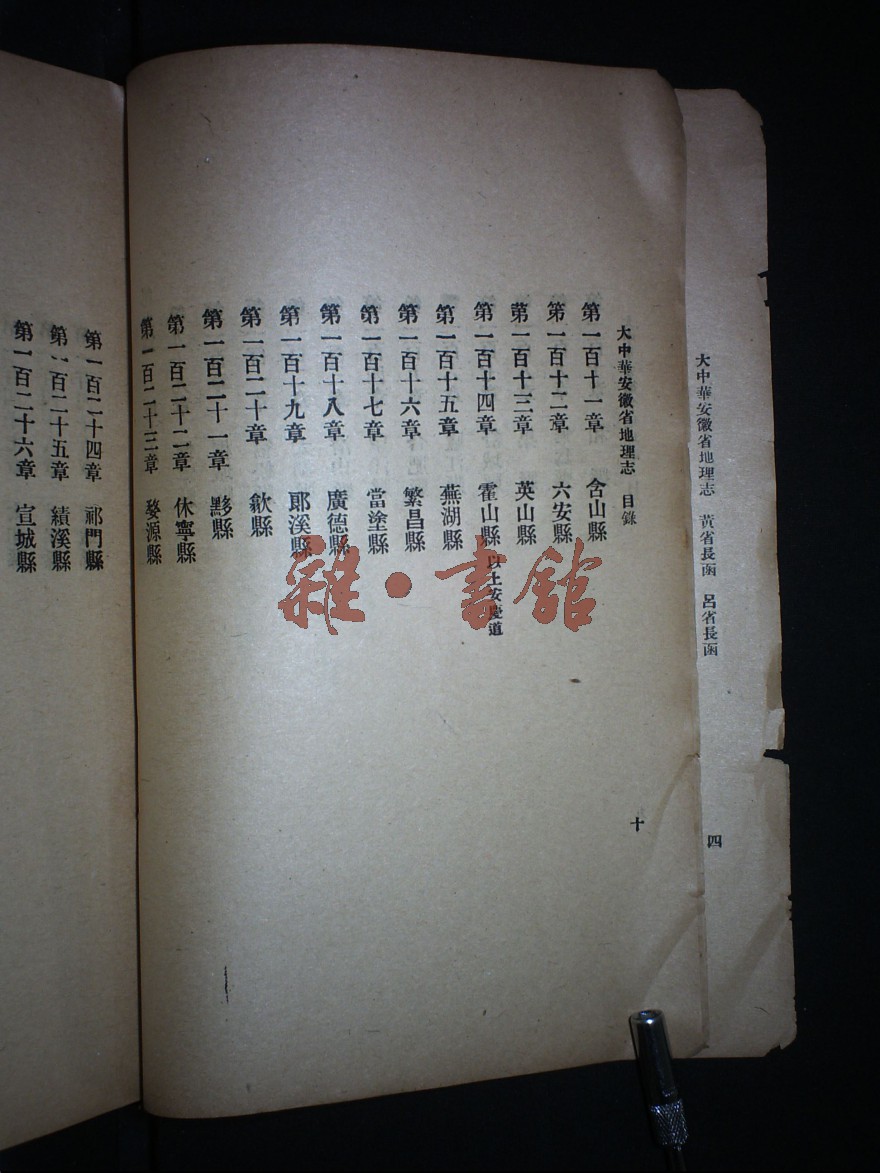 大中華安徽省地理志 黃省長函 呂省長函
四
大中華安徽省地理志 目錄
十
第一百十一章 含山縣
第一百十二章 六安縣
第一百十三章 英山縣
第一百十四章 霍山縣 以上安慶道
第一百十五章 蕪湖縣
第一百十六章 繁昌縣
第一百十七章 當塗縣
第一百十八章 廣德縣
第一百十九章 郎溪縣
第一百二十章 歙縣
第一百二十一章 黟縣
第一百二十二章 休寧縣
第一百二十三章 婺源縣
第一百二十四章 祁門縣
第一百二十五章 績溪縣
第一百二十六章 宣城縣
雜·書館